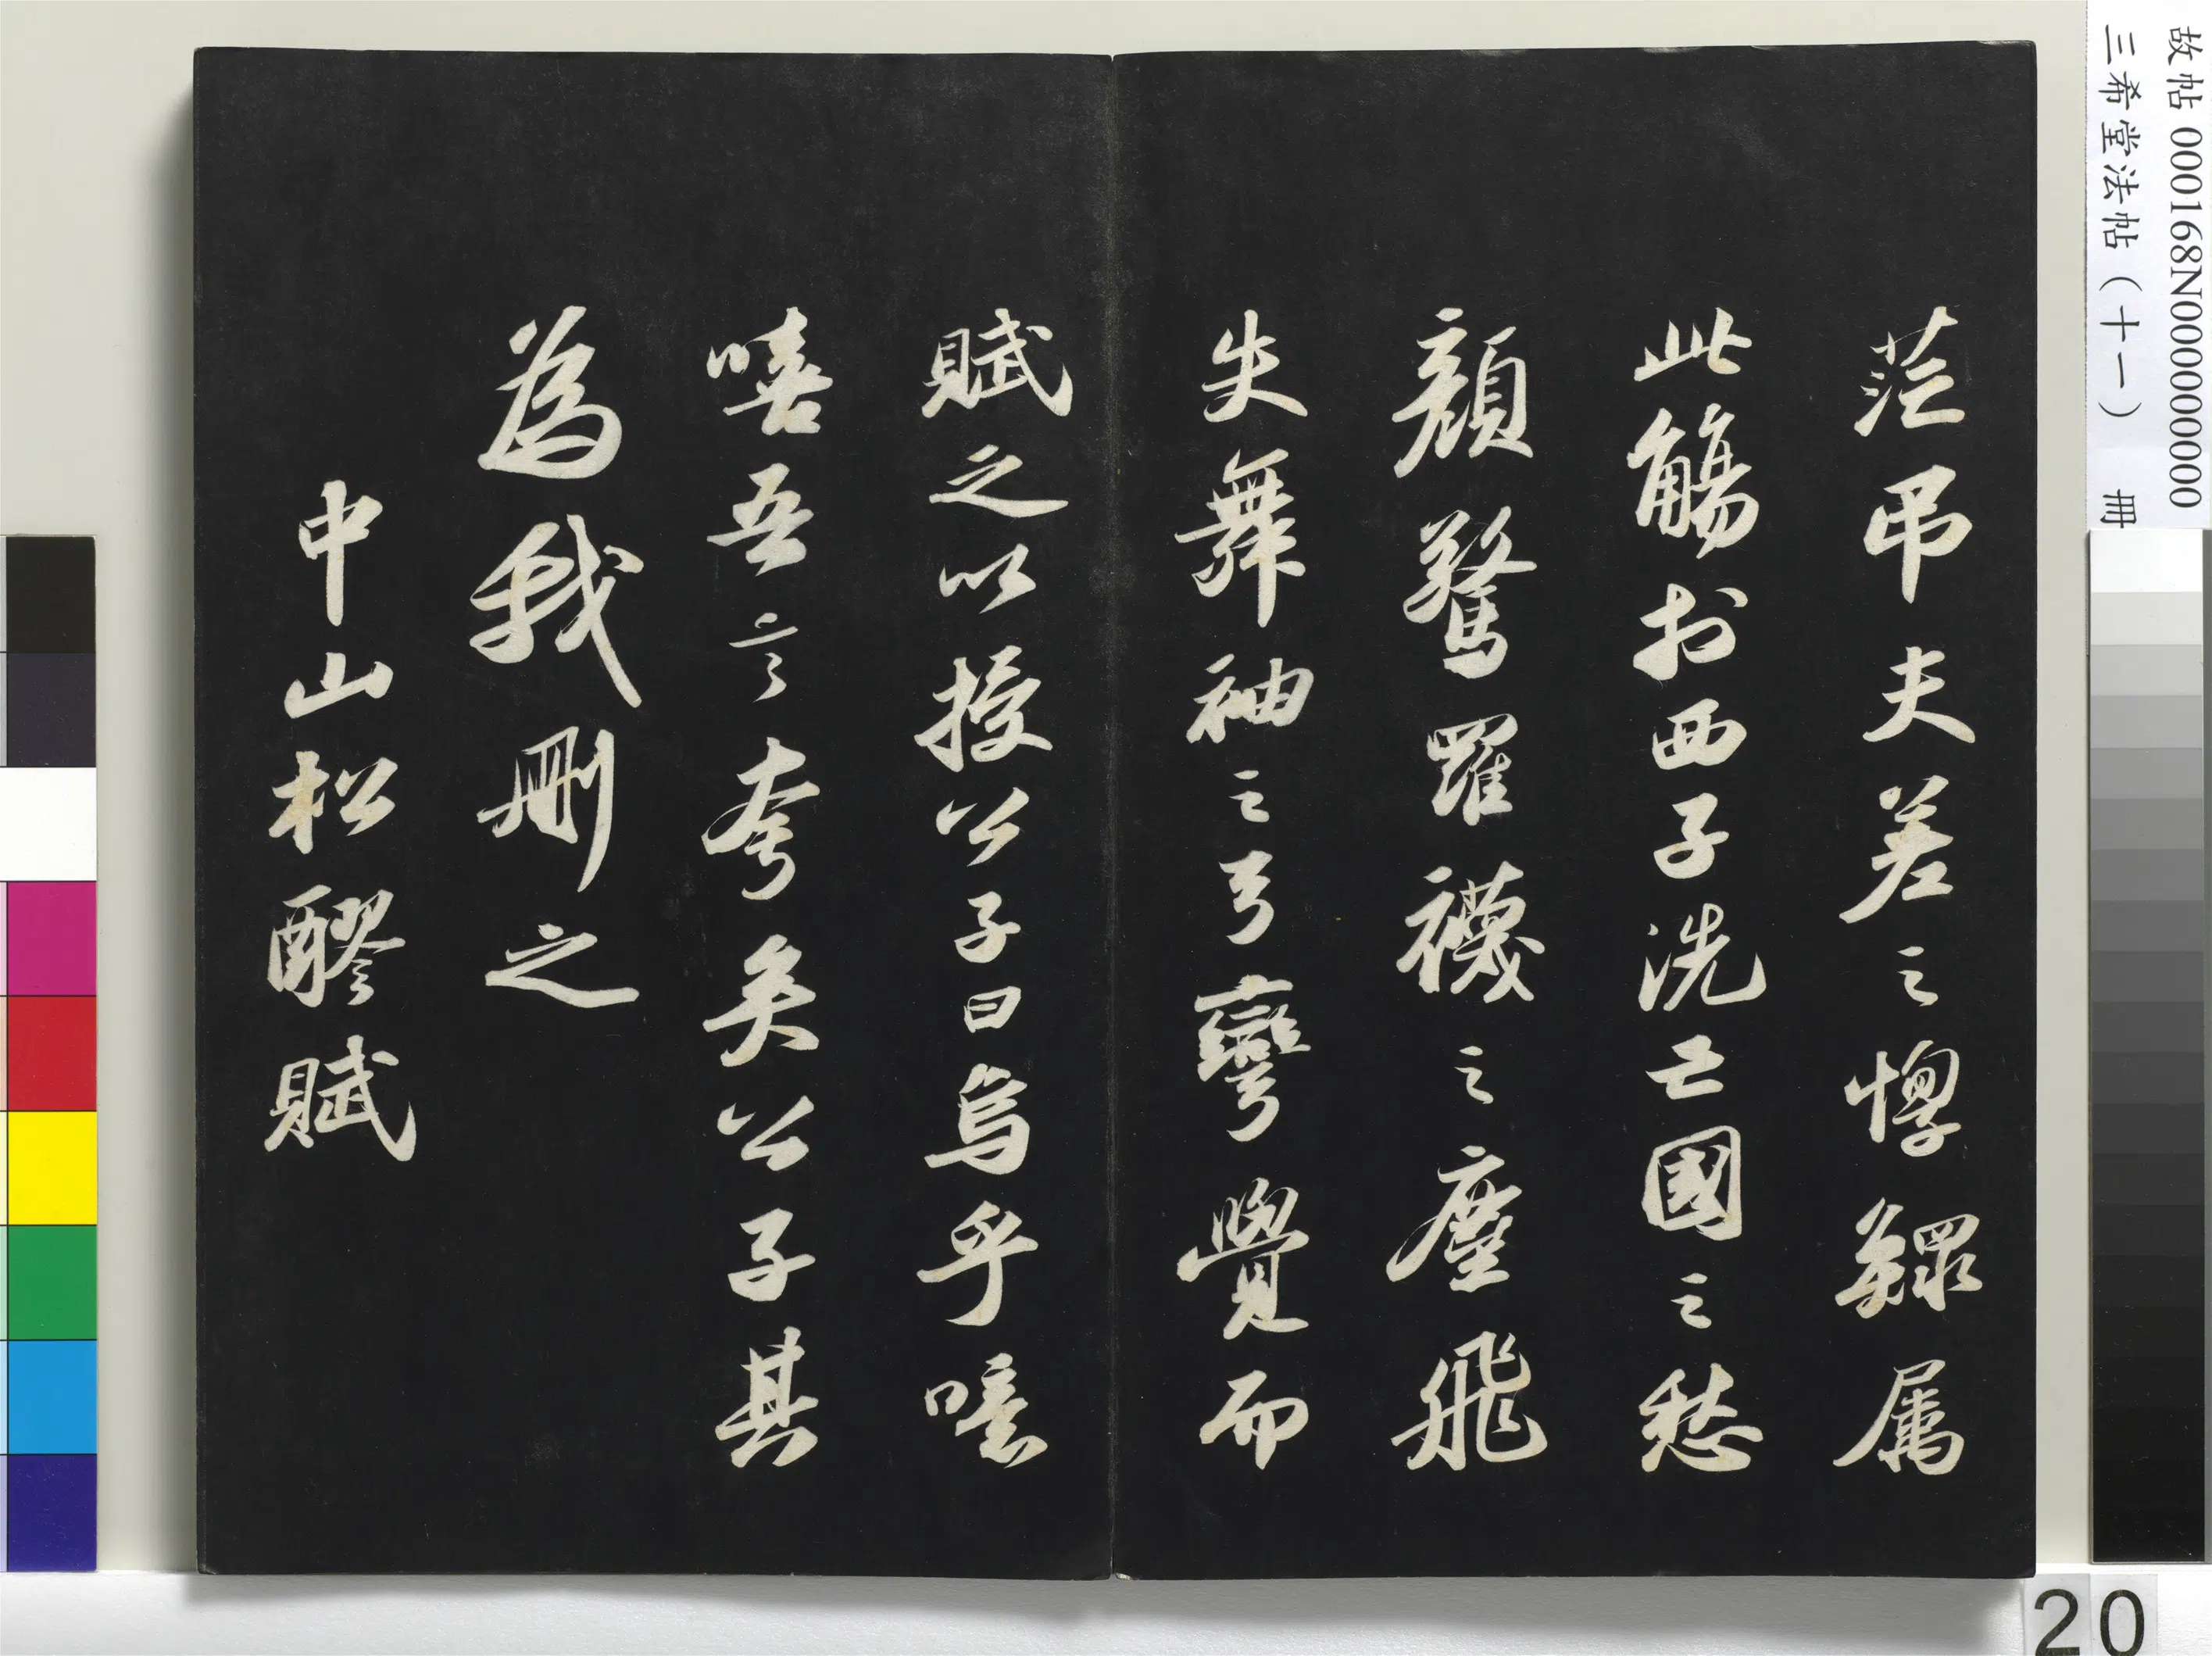 茫吊夫差之惸鰥属
此觴扵西子洗亡國之愁
顏驚羅襪之塵飛
失舞袖之弓彎覺而
賦之以授公子曰烏乎噫
嘻吾言夸矣公子其
為我刪之
中山松醪賦
故帖 000168N000000000
三希堂法帖（十一） 冊
20